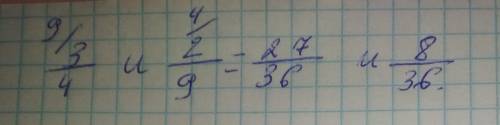 9/ 3/4 и 4/ 2/9 = 27/36 и 8/36.